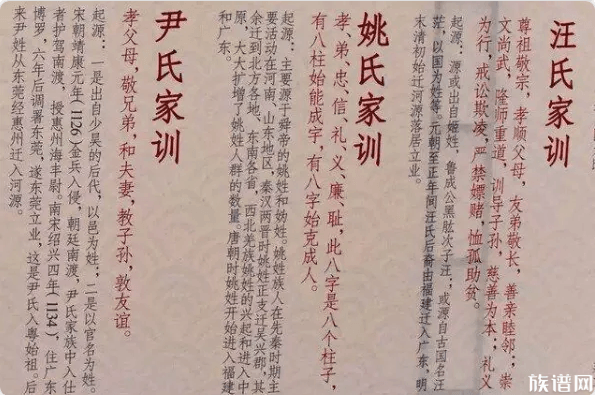 汪氏家训
尊祖敬宗，孝顺父母，友弟敬长，善亲睦邻；崇
文尚武，隆师重道，训导子孙，慈善为本；礼义
为行，戒讼欺凌，严禁嫖赌，恤孤助贫。
起源：源或出自姬姓，鲁成公黑肱次子汪；或源自古国名汪
茫，以国为姓等。元朝至正年间汪氏后裔由福建迁入广东，明
末清初始迁河源落居立业。
姚氏家训
孝、弟、忠、信、礼、义、廉、耻，此八字是八个柱子，
有八柱始能成宇，有八字始克成人。
起源：主要源于舜帝的姚姓和妫姓。姚姓族人在先秦时期主
要活动在河南、山东地区，秦汉两晋时姚姓正支迁吴兴郡，其
余迁到北方各地、东南各省，西北羌族姚姓的兴起和进入中
原，大大扩增了姚姓人群的数量。唐朝时姚姓开始进入福建
和广东。
尹氏家训
孝父母，敬兄弟，和夫妻，教子孙，敦友谊。
起源：一是出自少昊的后代，以邑为姓；二是以官名为姓。
宋朝靖康元年（1126）金兵入侵，朝廷南渡，尹氏家族中入仕
者护驾南渡，授惠州海丰尉。南宋绍兴四年（1134），住广东
博罗，六年后调署东莞，遂东莞立业，这是尹氏入粤始祖，后
来尹姓从东莞经惠州迁入河源。
族谱网